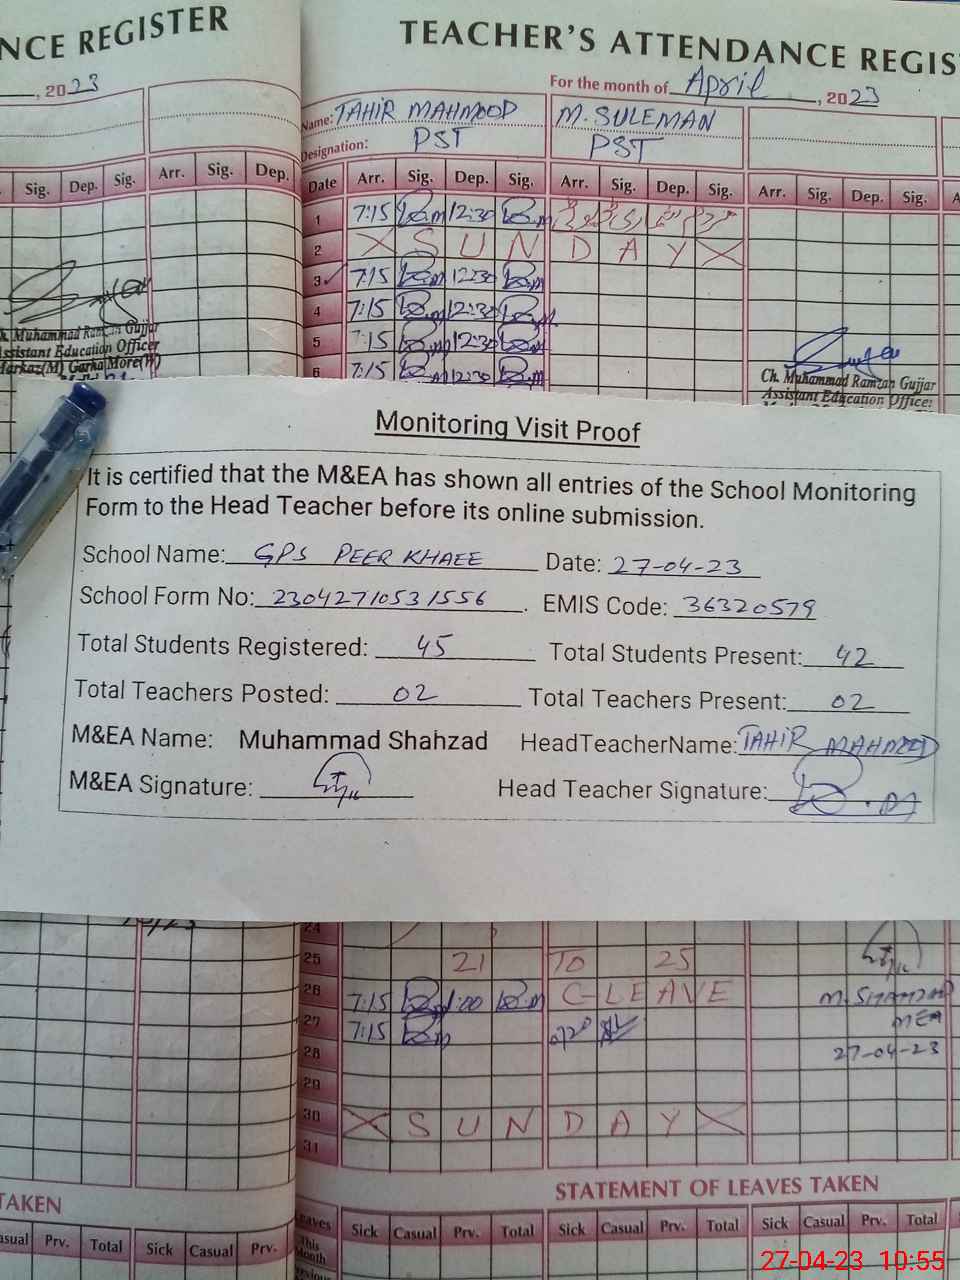 NCE REGISTER
, 2023
Sig. Dep. Sig. Arr. Sig. Dep.
TEACHER'S ATTENDANCE REGIS
For the month of April, 2023
Name: TAHIR MAHMOOD M. SULEMAN
Designation: PST PST
Date Arr. Sig. Dep. Sig. Arr. Sig. Dep. Sig. Arr. Sig. Dep. Sig. A
1 7:15 12:30
2 X S U N D A Y X
3 7:15 12:30
4 7:15 12:30
5 7:15 12:30
6 7:15 12:30
Ch. Muhammad Ramzan Gujjar
Assistant Education Officer
Markaz(M) Garha More(W)
Ch. Muhammad Ramzan Gujjar
Assistant Education Officer:
Monitoring Visit Proof
It is certified that the M&EA has shown all entries of the School Monitoring
Form to the Head Teacher before its online submission.
School Name: GPS PEER KHAEE Date: 27-04-23
School Form No: 23042710531556. EMIS Code: 36320579
Total Students Registered: 45 Total Students Present: 42
Total Teachers Posted: 02 Total Teachers Present: 02
M&EA Name: Muhammad Shahzad HeadTeacherName: TAHIR MAHMOOD
M&EA Signature: Head Teacher Signature:
24
25 21 TO 25
26 7:15 1:00 C-LEAVE
27 7:15
28
29
30 X S U N D A Y X
31
M. SHAHZAD
MEA
27-04-23
TAKEN
STATEMENT OF LEAVES TAKEN
asual Prv. Total Sick Casual Prv.
Leaves Sick Casual Prv. Total Sick Casual Prv. Total Sick Casual Prv. Total
This Month
27-04-23 10:55